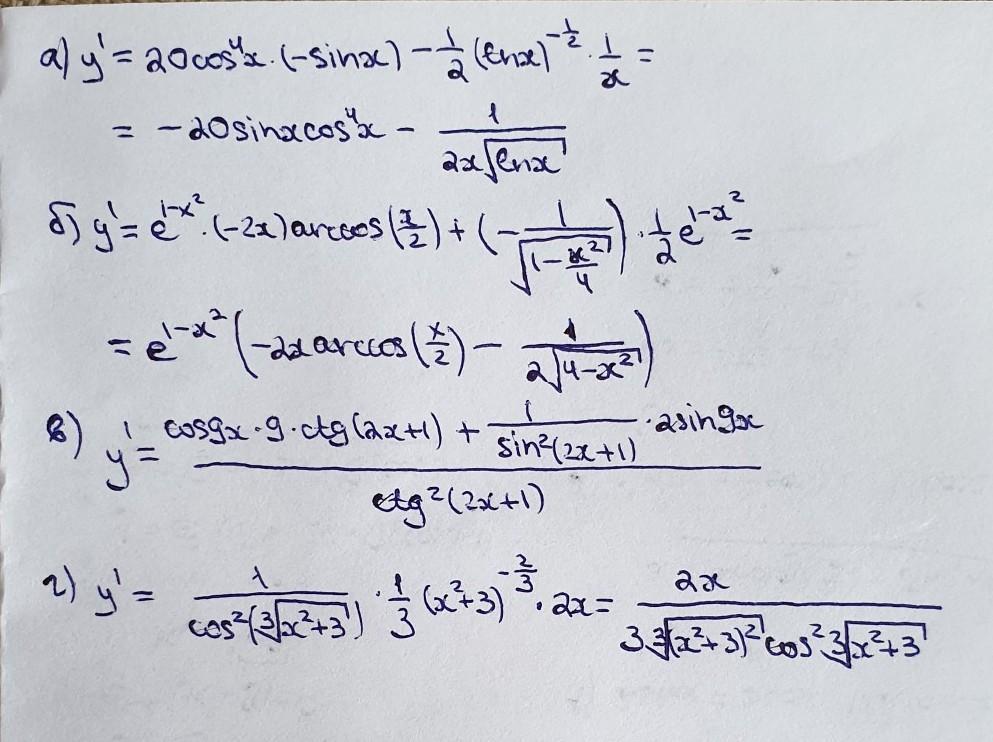 а) y' = 20cos⁴x · (-sinx) - 1/2 (lnx)^(-1/2) · 1/x =
= -20sinxcos⁴x - 1/(2x√(lnx))
б) y' = e^(1-x²) · (-2x)arccos(x/2) + (-1/√(1-x²/4)) · 1/2 e^(1-x²) =
= e^(1-x²) (-2xarccos(x/2) - 1/(2√(4-x²)))
в) y' = (cos9x · 9 · ctg(2x+1) + 1/(sin²(2x+1)) · 2sin9x)/(ctg²(2x+1))
г) y' = 1/(cos²(∛(x²+3))) · 1/3 (x²+3)^(-2/3) · 2x = 2x/(3∛((x²+3)²) cos²∛(x²+3))